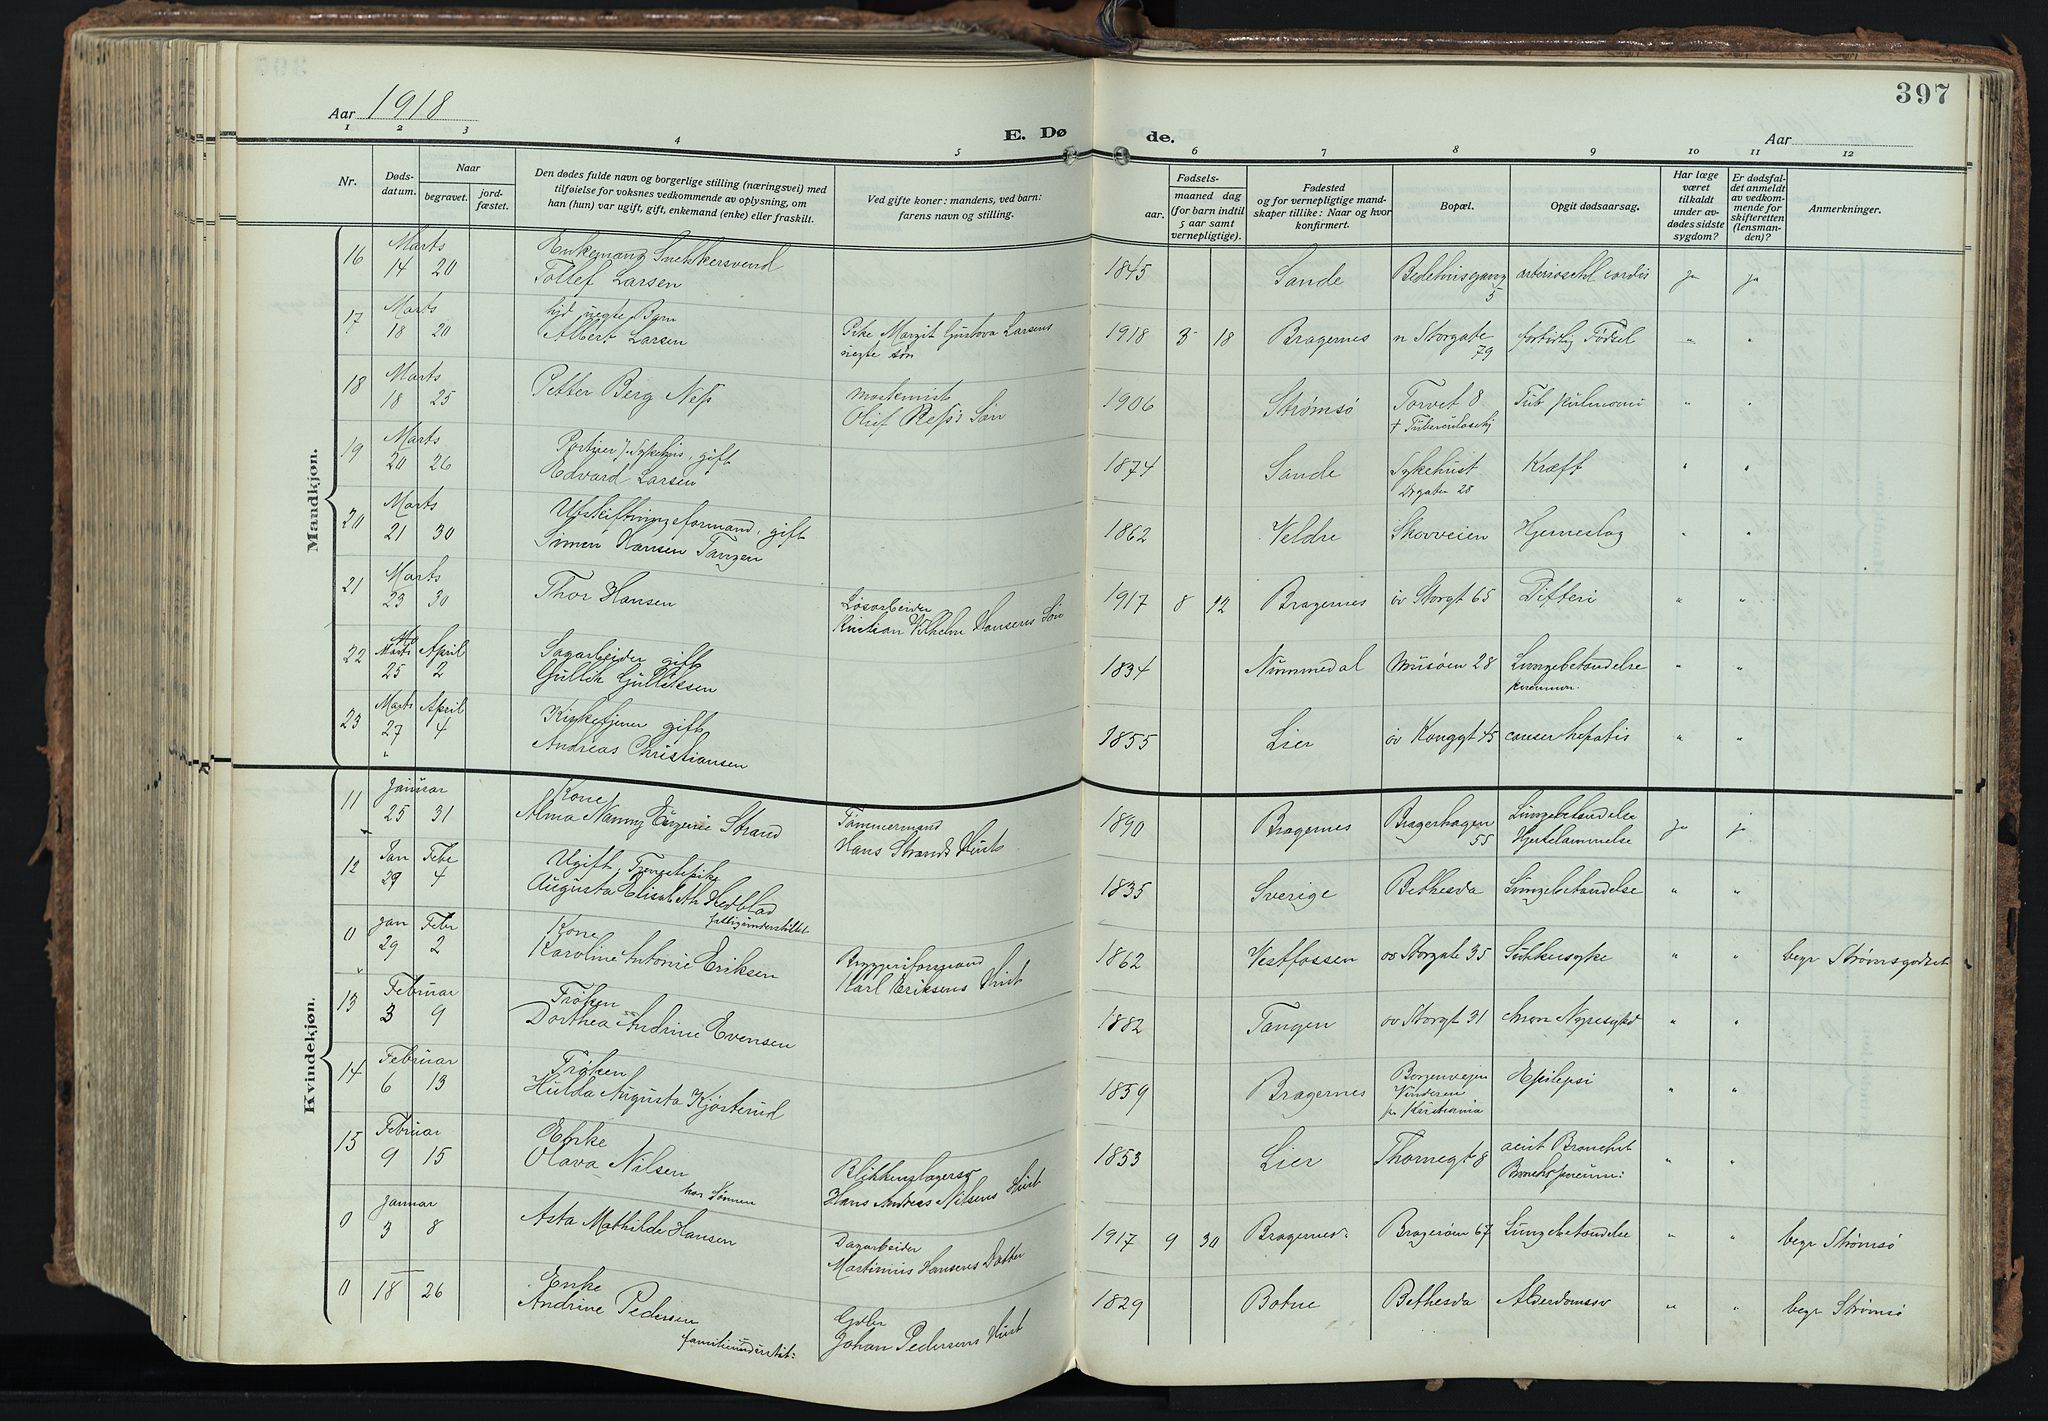 397
Aar 1918
E. Døde.
Aar
1 2 3 4 5 6 7 8 9 10 11 12
Nr.
Dødsdatum.
Naar
begravet.
jordfæstet.
Den dødes fulde navn og borgerlige stilling (næringsvei) med
tilføielse for voksnes vedkommende av oplysning, om
han (hun) var ugift, gift, enkemand (enke) eller fraskilt.
Ved gifte koner: mandens, ved barn:
farens navn og stilling.
Fødsels-
aar. maaned dag
(for barn indtil
5 aar samt
vernepligtige).
Fødested
og for vernepligtige mandskaper tillike: Naar og hvor
konfirmert.
Bopæl.
Opgit dødsaarsag.
Har læge
været
tilkaldt
under avdødes sidste
sygdom?
Er dødsfaldet anmeldt
av vedkommende for
skifteretten
(lensmanden)?
Anmerkninger.
Mandkjøn.
16 Marts 14 20 Enkemand Snekkersvend
Tollef Larsen 1845 Sande Bedehusgang 5 arterioschl cordis ja ja
17 Marts 18 20 Albert Larsen Pike Margit Gustava Larsens
uegte søn 1918 3 18 Bragernes n Storgate 79 fortidlig Fødsel " "
18 Marts 18 25 Petter Berg Ness Maskinist
Oluf Ness's Søn 1906 Strømsø Torvet 8 Tub pulmonu " "
19 Marts 20 26 Portner v. Sykehus, gift
Edvard Larsen 1874 Sande Sykehust Drgaten 28 Kræft " "
20 Marts 21 30 Utskiftningsformand, gift
Simen Hansen Tangen 1862 Veldre Skovveien Hjerneslag " "
21 Marts 23 30 Thor Hansen Løsarbeider
Kristian Vilhelm Hansens Søn 1917 8 12 Bragernes øv Storgt 65 Difteri " "
22 Marts 25 April 2 Sagarbeider gift
Gullik Gulliksen 1834 Nummedal Musøen 28 Lungebetændelse " "
23 Marts 27 April 4 Kirketjener gift
Andreas Christiansen 1855 Lier øv Konggt 45 canser hepatis " "
Kvindekjøn.
11 Januar 25 31 Kone
Alma Nanny Eugenie Strand Tømmermand
Hans Strands Hust 1890 Bragernes Bragerhagen 55 Lungebetændelse
Hjertelammelse ja ja
12 Jan 29 Febr 4 Ugift, Tjenestepike
Augusta Elisabeth Hedblad
fattigunderstøttet 1835 Sverige Bethesda Lungebetændelse " "
0 Jan 29 Febr 2 Kone
Karoline Antonie Eriksen Bryggeriformand
Karl Eriksens Hust 1862 Vestfossen øv Storgate 35 Sukkersyke " " begr Strømsgodset
13 Februar 3 9 Frøken
Dorthea Andrine Evensen 1882 Tangen øv Storgt 31 chron Nyresykd " "
14 Februar 6 13 Frøken
Hulda Augusta Kjøsterud 1859 Bragernes Borgenveien
Vinderen
pr Kristiania Epilepsi " "
15 Februar 9 15 Enke
Olava Nilsen
hos Sønnen Blikkenslagersv
Hans Andreas Nilsens Hust 1853 Lier Thornegt 8 acut Bronchit
Bronchopneumoni " "
0 Januar 3 8 Asta Mathilde Hansen Dagarbeider
Martinius Hansens Datter 1917 9 30 Bragernes Bragerøen 67 Lungebetændelse " " begr Strømsø
0 18 26 Enke
Andrine Pedersen Johan Pedersens Hust 1829 Botne Bethesda Alderdomssv " " begr Strømsø